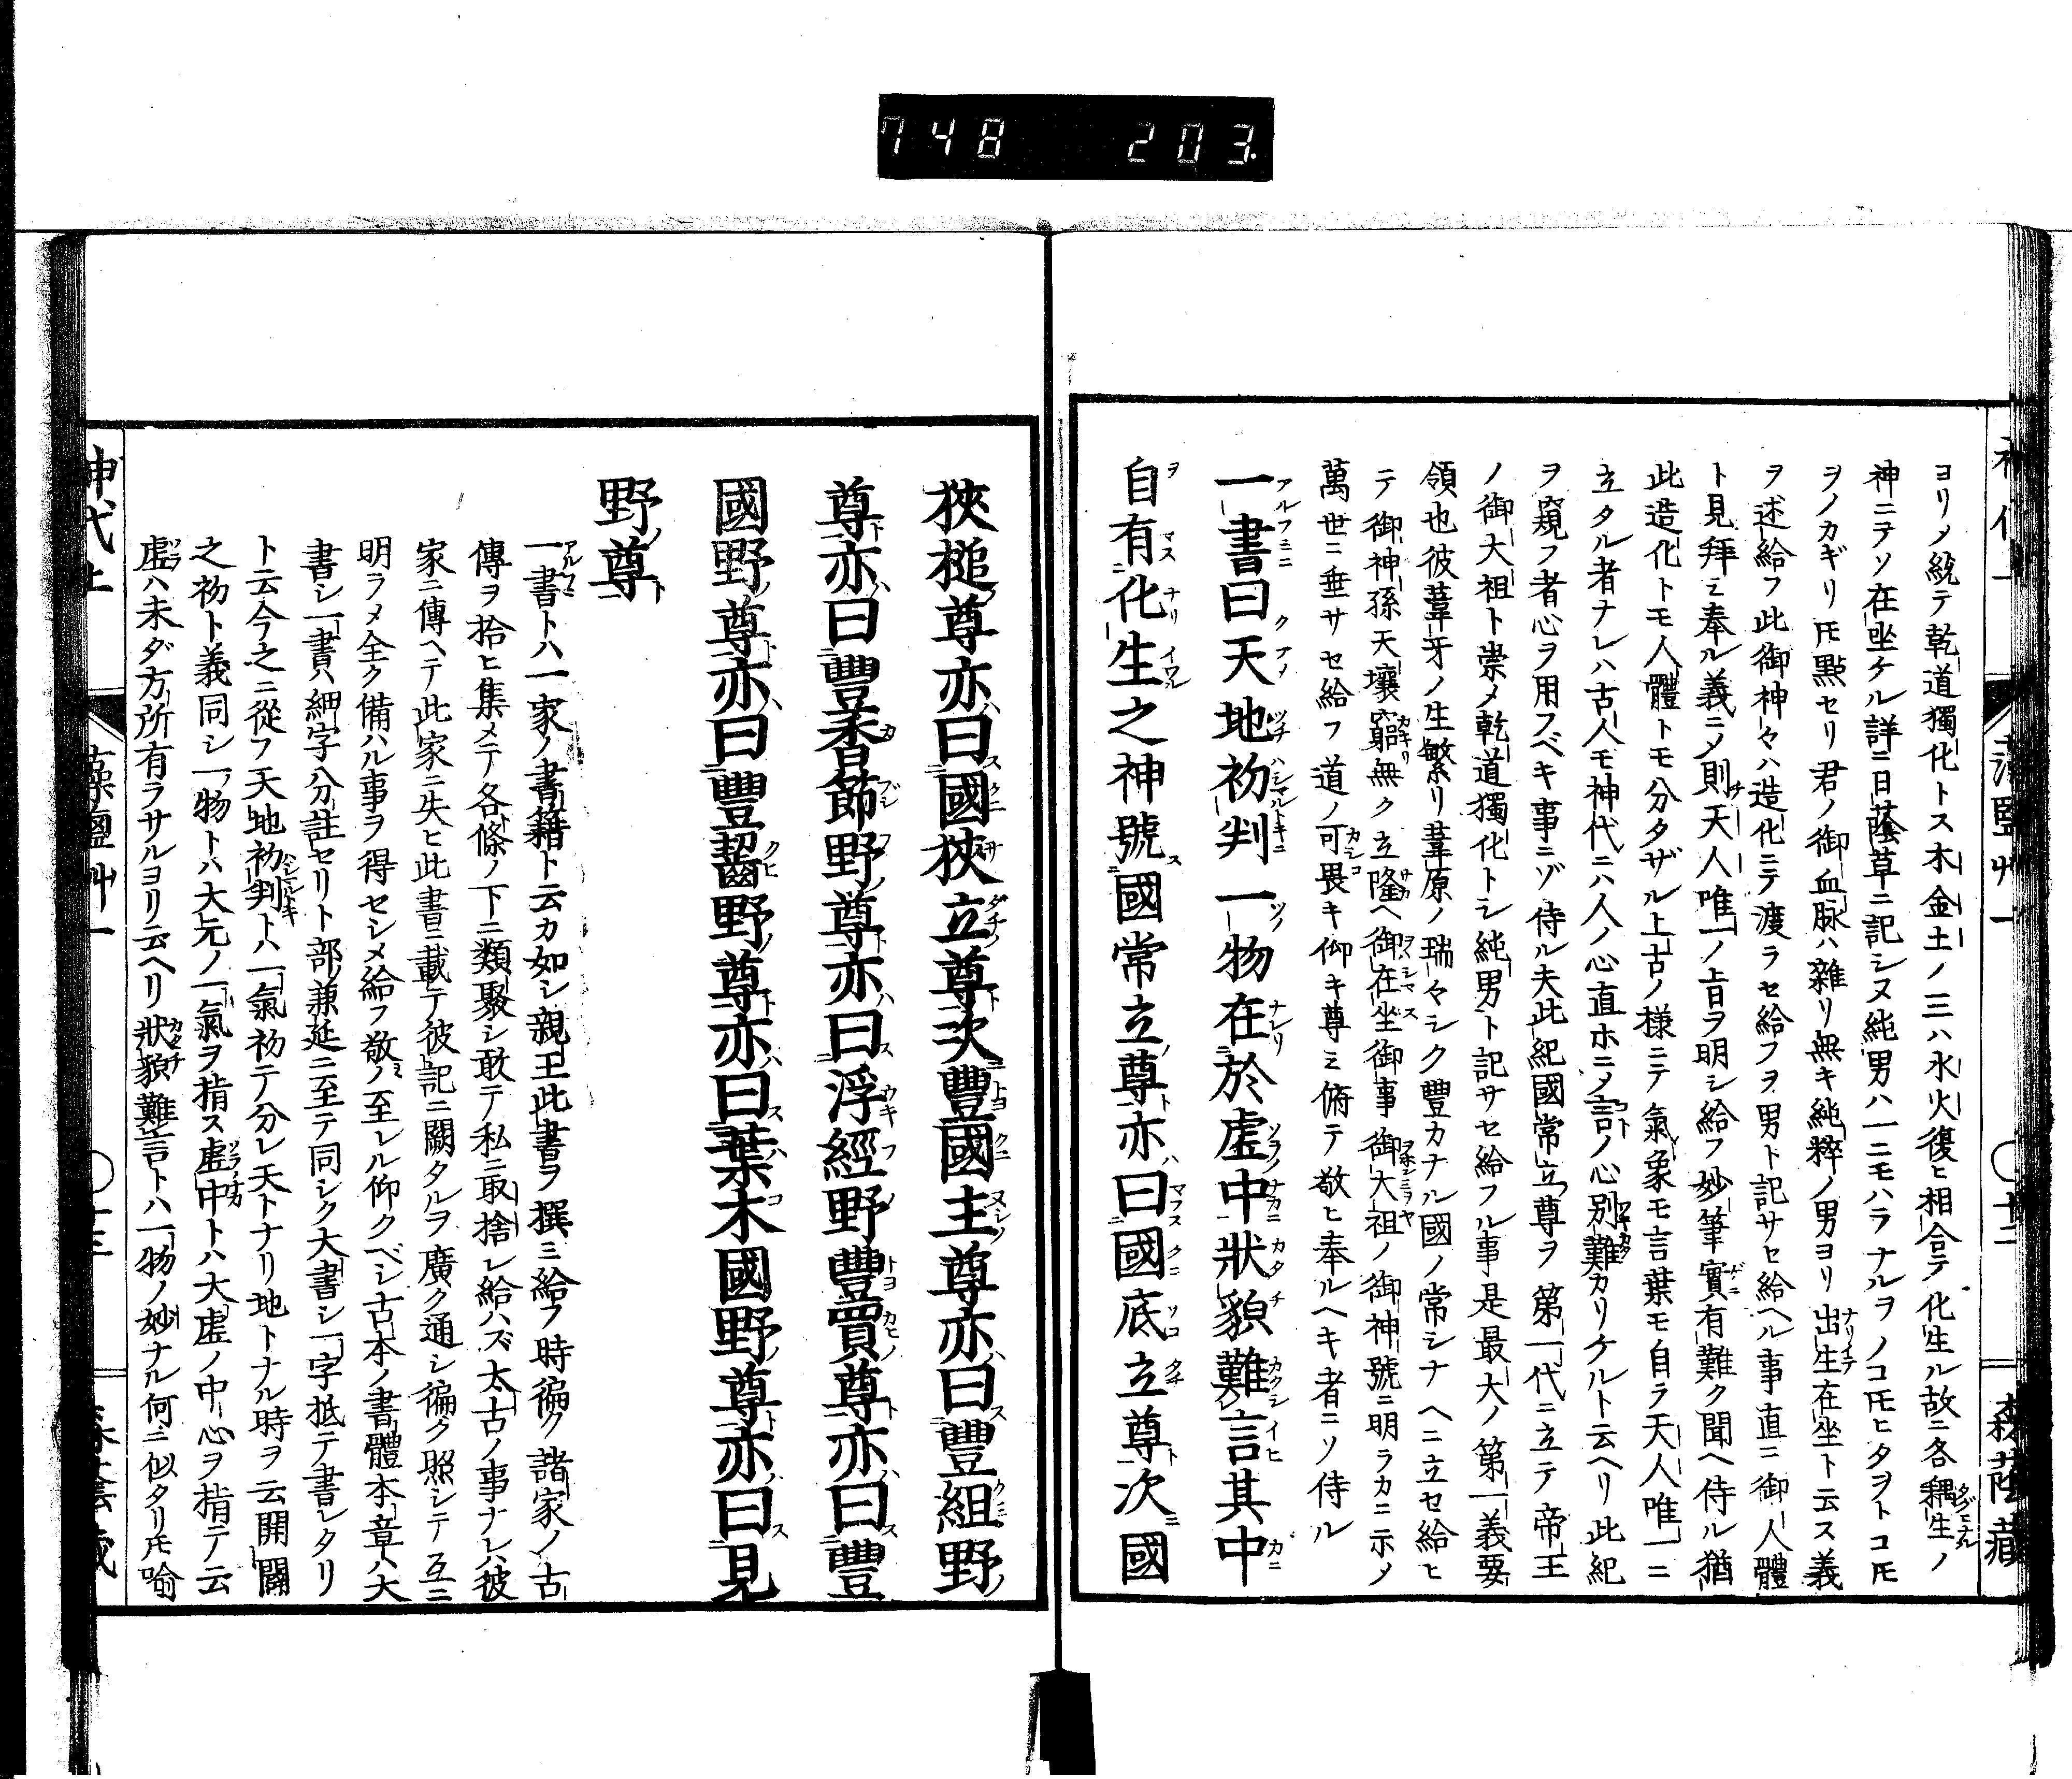 748 203.
ヨリメ統テ乾道獨化トス木金土ノ三ハ水火復ヒ相合テ化生ル故ニ各耦生ノ
神ニテソ在坐ケル詳ニ日蔭草ニ記シヌ純男ハ一ニモハラナルヲノコ𪜈ヒタヲトコ𪜈
ヲノカギリ𪜈點セリ君ノ御血脉ハ雜リ無キ純粹ノ男ヨリ出生在坐ト云ス義
ヲ述給フ此御神々ハ造化ニテ渡ラセ給フヲ男ト記サセ給ヘル事直ニ御人體
ト見拜ミ奉ル義ニメ則天人唯一ノ上日ヲ明シ給フ妙筆實有難ク聞ヘ侍ル猶
此造化トモ人體トモ分タザル上古ノ様ニテ氣象モ言葉モ自ラ天人唯一ニ
立タル者ナレハ古人モ神代ニハ人ノ心直ホニメ言ノ心別難カリケルト云ヘリ此紀
ヲ窺フ者心ヲ用フベキ事ニゾ侍ル夫此紀國常立尊ヲ第一代ニ立テ帝王
ノ御大祖ト崇メ乾道獨化トシ純男ト記サセ給フル事是最大ノ第一義要
領也彼葦牙ノ生繁リ葦原ノ瑞々シク豐カナル國ノ常シナヘニ立セ給ヒ
テ御神孫天壤窮無ク立隆ヘ御在坐御事御大祖ノ御神號ニ明ラカニホメ
萬世ニ垂サセ給フ道ノ可畏キ仰キ尊ミ俯テ敬ヒ奉ルヘキ者ニソ侍ル
一書曰天地初判一物在於虛中狀貌難言其中
自有化生之神號國常立尊亦曰國底立尊次國
狹槌尊亦曰國狹立尊次豐國主尊亦曰豐組野
尊亦曰豐香節野尊亦曰浮經野豐買尊亦曰豐
國野尊亦曰豐齧野尊亦曰葉木國野尊亦曰見
野尊
一書トハ一家ノ書籍ト云カ如シ親王此書ヲ撰ミ給フ時徧ク諸家ノ古
傳ヲ拾ヒ集メテ各條ノ下ニ類聚シ敢テ私ニ取捨シ給ハズ太古ノ事ナレハ彼
家ニ傳ヘテ此家ニ失ヒ此書ニ載テ彼記ニ闕タルヲ廣ク通シ徧ク照シテ互ニ
明ラメ全ク備ハル事ヲ得セシメ給フ敬ノ至レル仰クベシ古本ノ書體本章ハ大
書シ一書ハ細字分註セリト部兼延ニ至テ同シク大書シ一字抵テ書レタリ
ト云今之ニ從フ天地初判トハ一氣初テ分レ天トナリ地トナル時ヲ云開闢
之初ト義同シ一物トハ大元ノ一氣ヲ指ス虛中トハ大虛ノ中心ヲ指テ云
虛ハ未ダ方所有ラサルヨリ云ヘリ狀貌難言トハ一物ノ妙ナル何ニ似タリ𪜈喩
神代上
藻鹽艸一